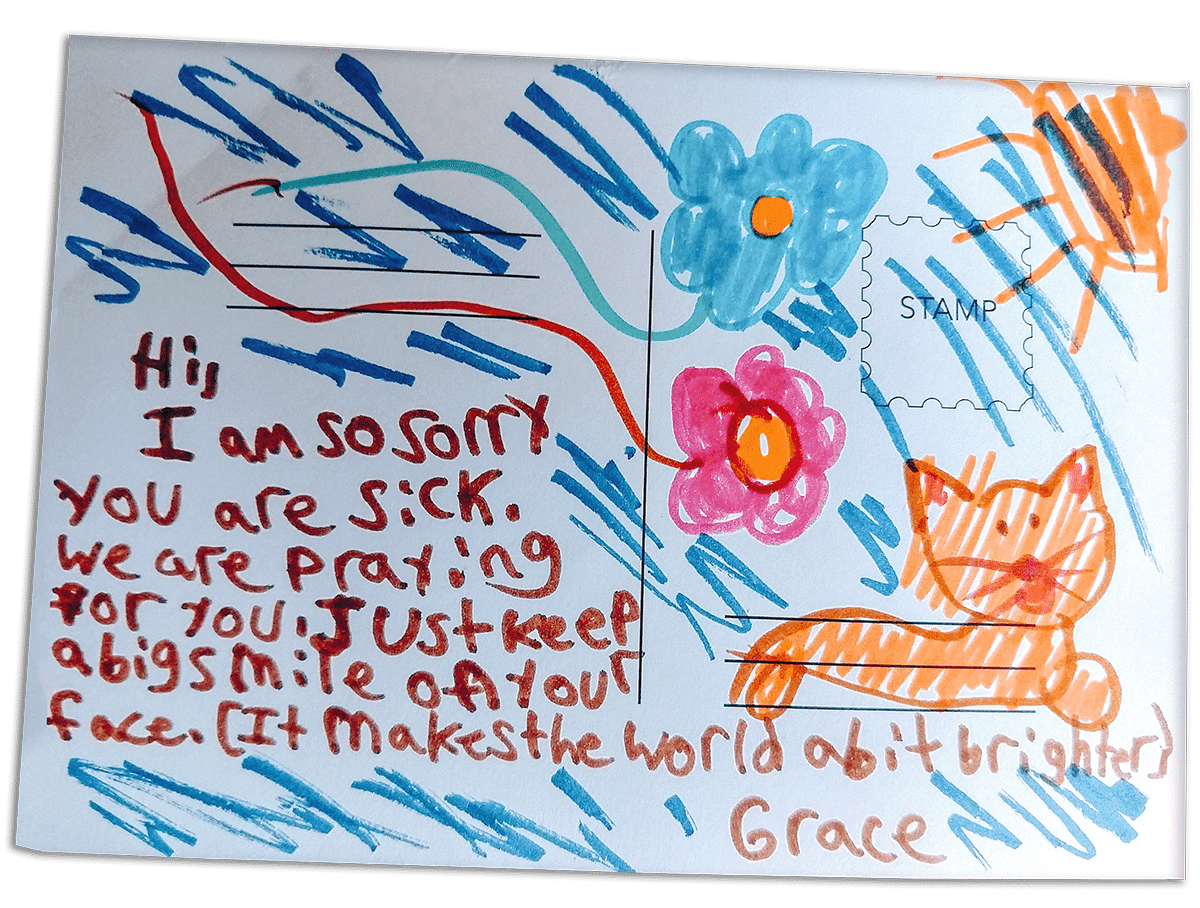 STAMP
Hi,
I am so sorry
you are sick.
We are praying
for you. Just keep
a big smile on your
face. (It makes the world a bit brighter)
Grace